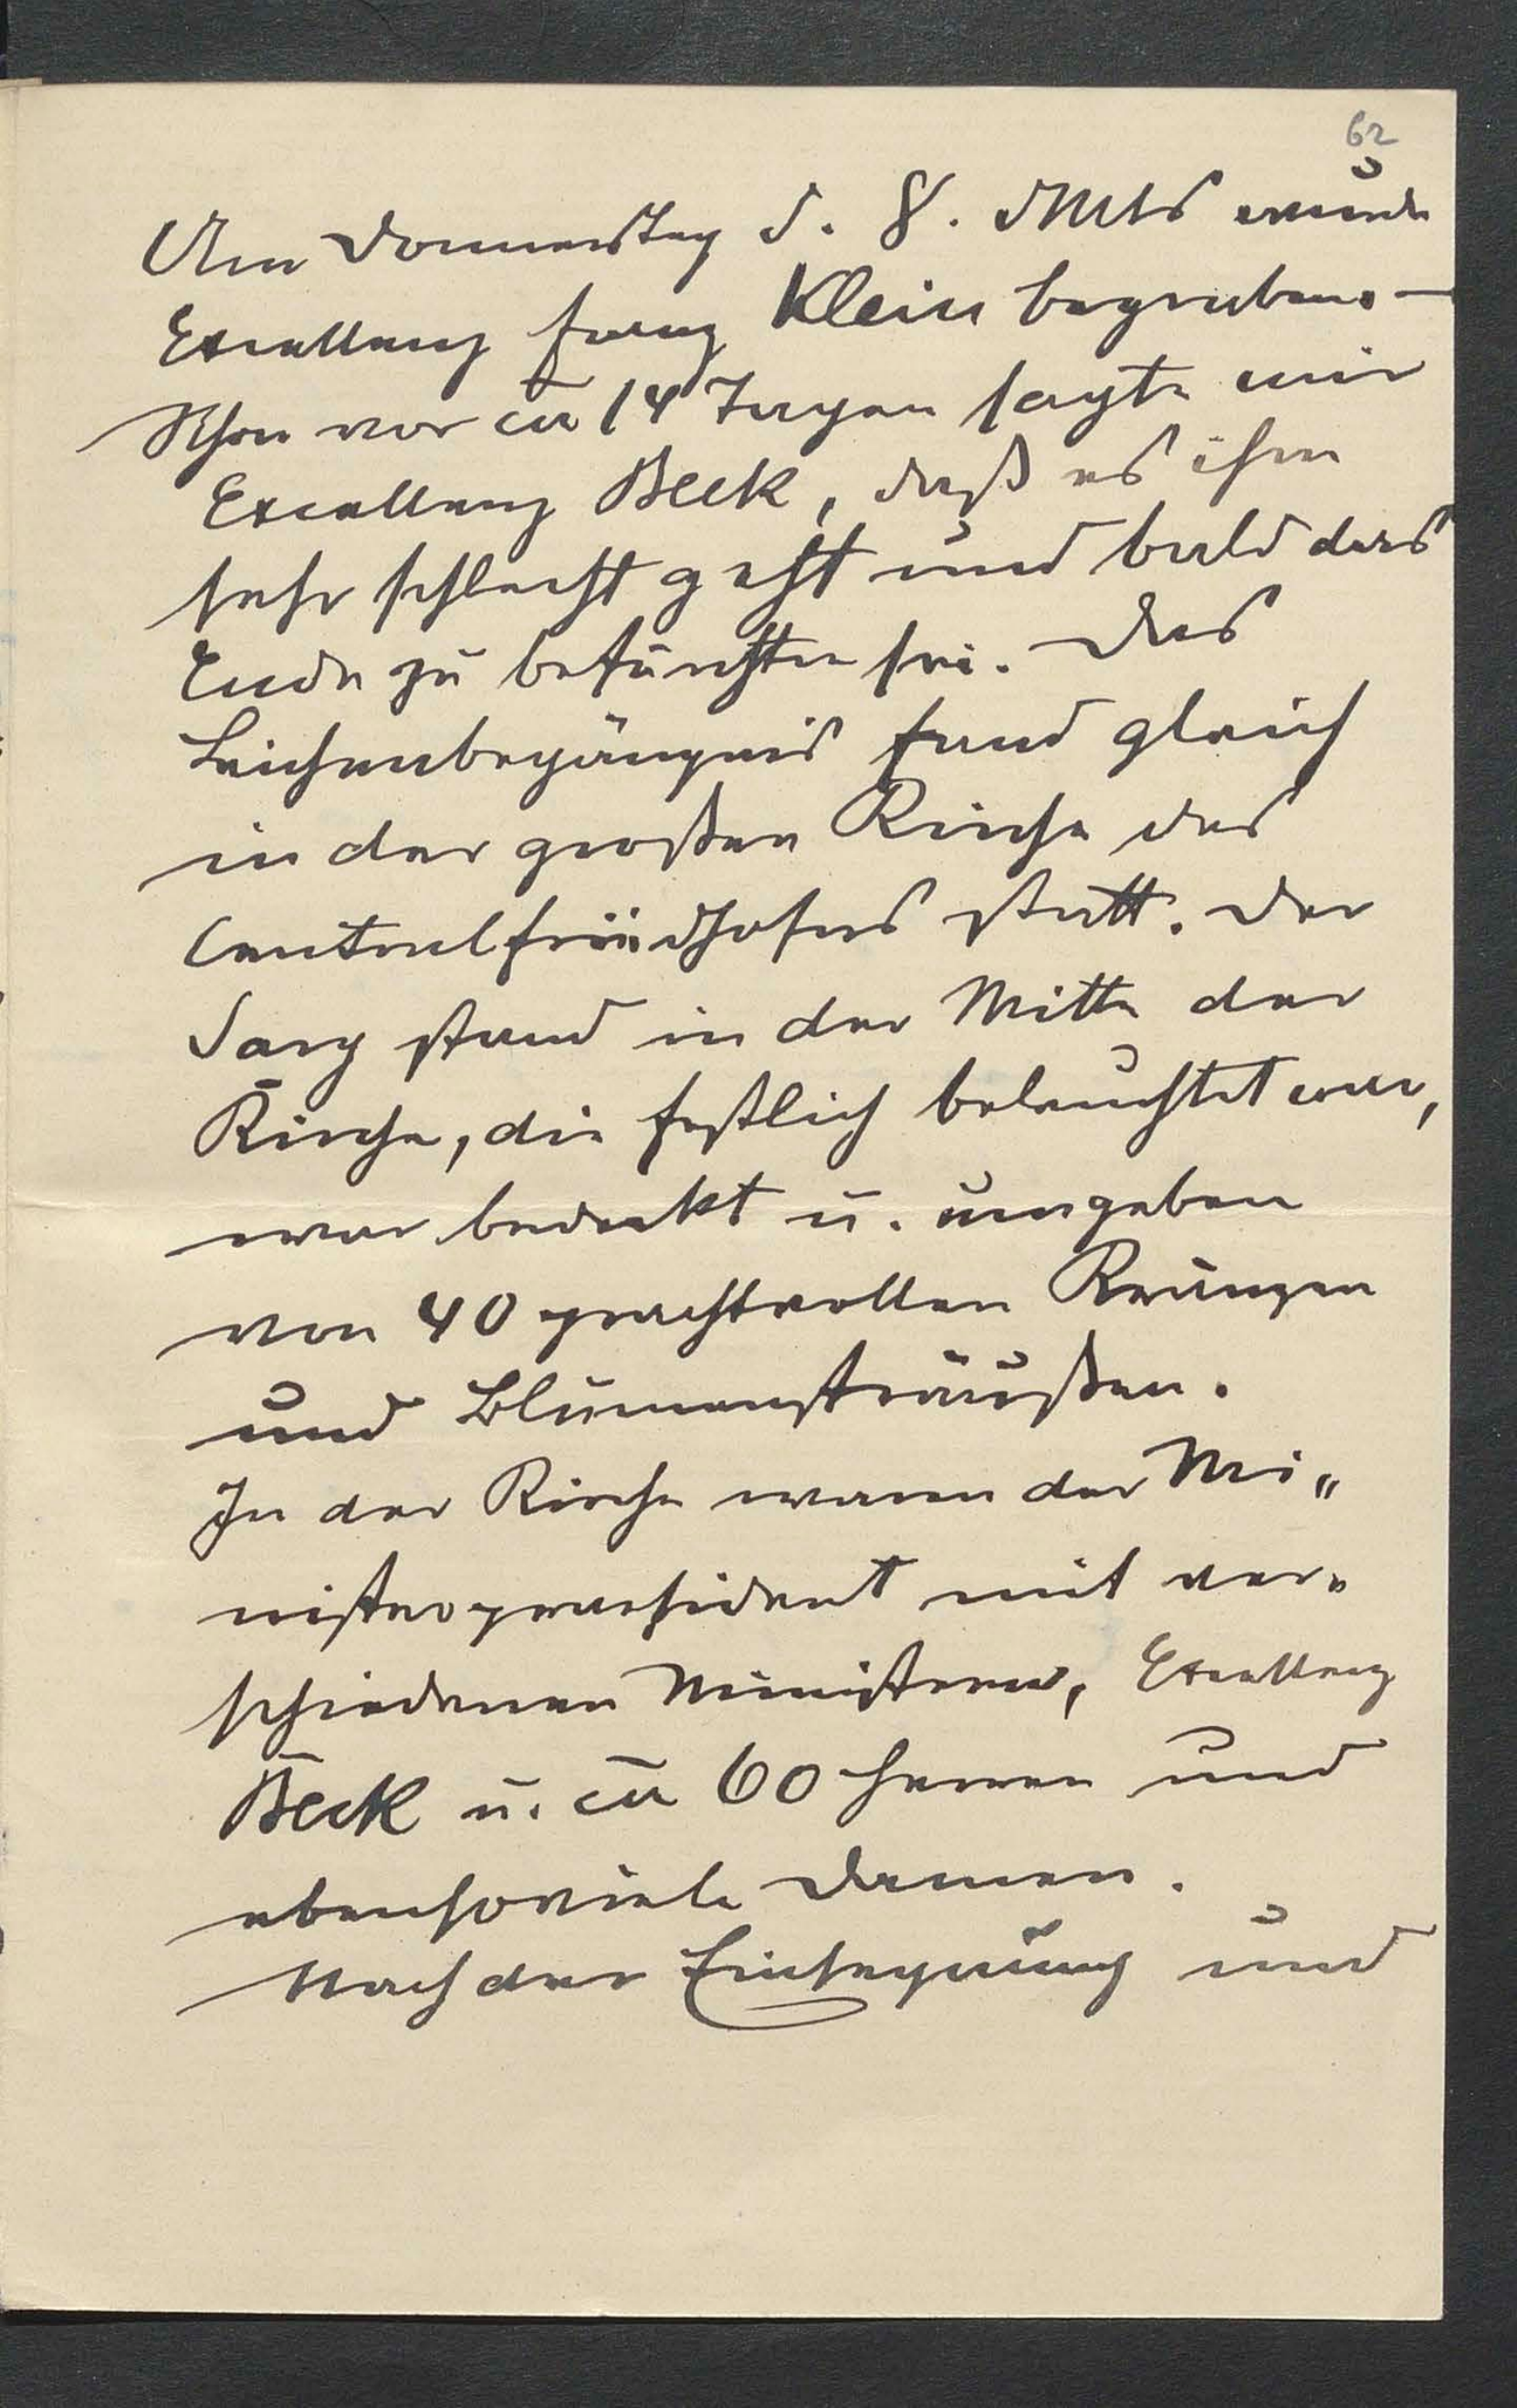 62
Am Donnerstag d. 8. d Mts wurde
Excellenz Franz Klein begraben. –
Schon vor ca 14 Tagen sagte mir
Excellenz Beck, daß es ihm
sehr schlecht geht und bald das
Ende zu befürchten sei. Das
Leichenbegängnis fand gleich
in der großen Kirche des
Centralfriedhofes statt. Der
Sarg stand in der Mitte der
Kirche, die festlich beleuchtet war,
war bedeckt u. umgeben
von 40 prachtvollen Kränzen
und Blumensträußen.
In der Kirche waren der Mi„
nisterpraesident mit ver„
schiedenen Ministern, Excellenz
Beck u. ca 60 Herren und
ebensoviele Damen.
Nach der Einsegnung und